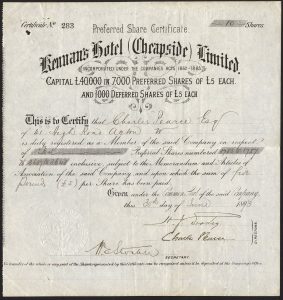 Preferred Share Certificate.
Certificate No 283
10 Shares
Kennans Hotel (Cheapside) Limited.
INCORPORATED UNDER THE COMPANIES ACTS 1862-1883
CAPITAL £40000 IN 7000 PREFERRED SHARES OF £5 EACH.
AND 1000 DEFERRED SHARES OF £5 EACH
This is to Certify that Charles Pearce Esq
of High Road W
is duly registered as a Member of the said Company in respect
of Preferred Shares numbered
inclusive, subject to the Memorandum and Articles of
Association of the said Company and upon which the sum of five
pounds (£5) per Share has been paid.
Given under the Common Seal of the said Company,
this day of June 1893
Charles Pearce
DIRECTORS
SECRETARY
No transfer of the whole or any part of the Shares represented by this Certificate can be recognised unless it be deposited at the Company's Office.